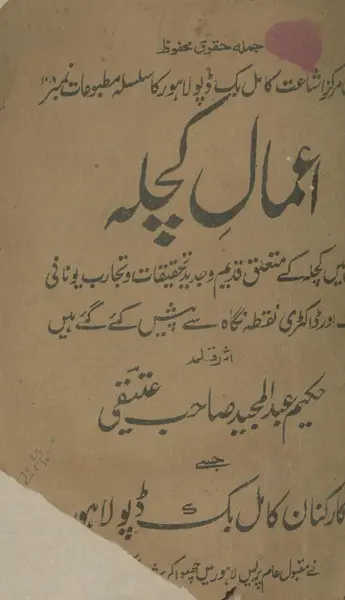 جملہ حقوق محفوظ
مرکز اشاعت کامل بک ڈپو لاہور کا سلسلہ مطبوعات نمبر ۱۰۸
اعمالِ کچلہ
میں کچلہ کے متعلق قدیم و جدید تحقیقات و تجارب یونانی
اور ڈاکٹری نقطہ نگاہ سے پیش کئے گئے ہیں
اثر قلمہ
حکیم عبدالمجید صاحب عتیقی
جسے
کارکنان کامل بک ڈپو لاہور
نے مقبول عام پریس لاہور میں چھپوا کر